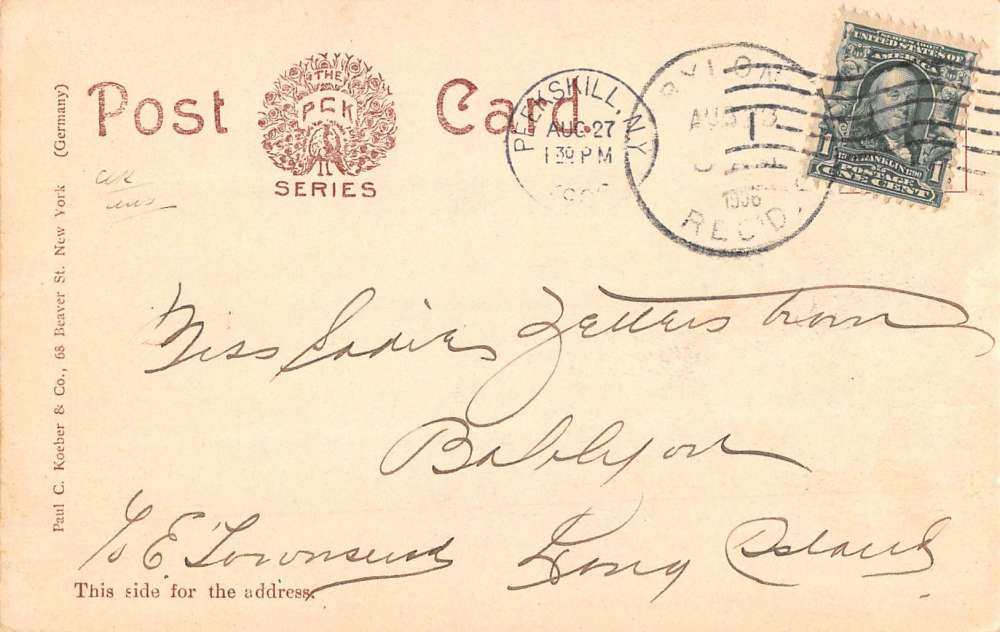 Post Card.
THE
PCK
SERIES
PEEKSKILL, N.Y.
AUG 27
1 30 PM
BYLON
AUG
1
1906
REC'D.
SERIES 1902
UNITED STATES OF AMERICA
1 FRANKLIN 1790 1
POSTAGE
ONE CENT
Paul C. Koeber & Co., 68 Beaver St. New York (Germany)
Miss Sadie Zetterstrom
Babylon
c/o E. Townsend Long Island
This side for the address.